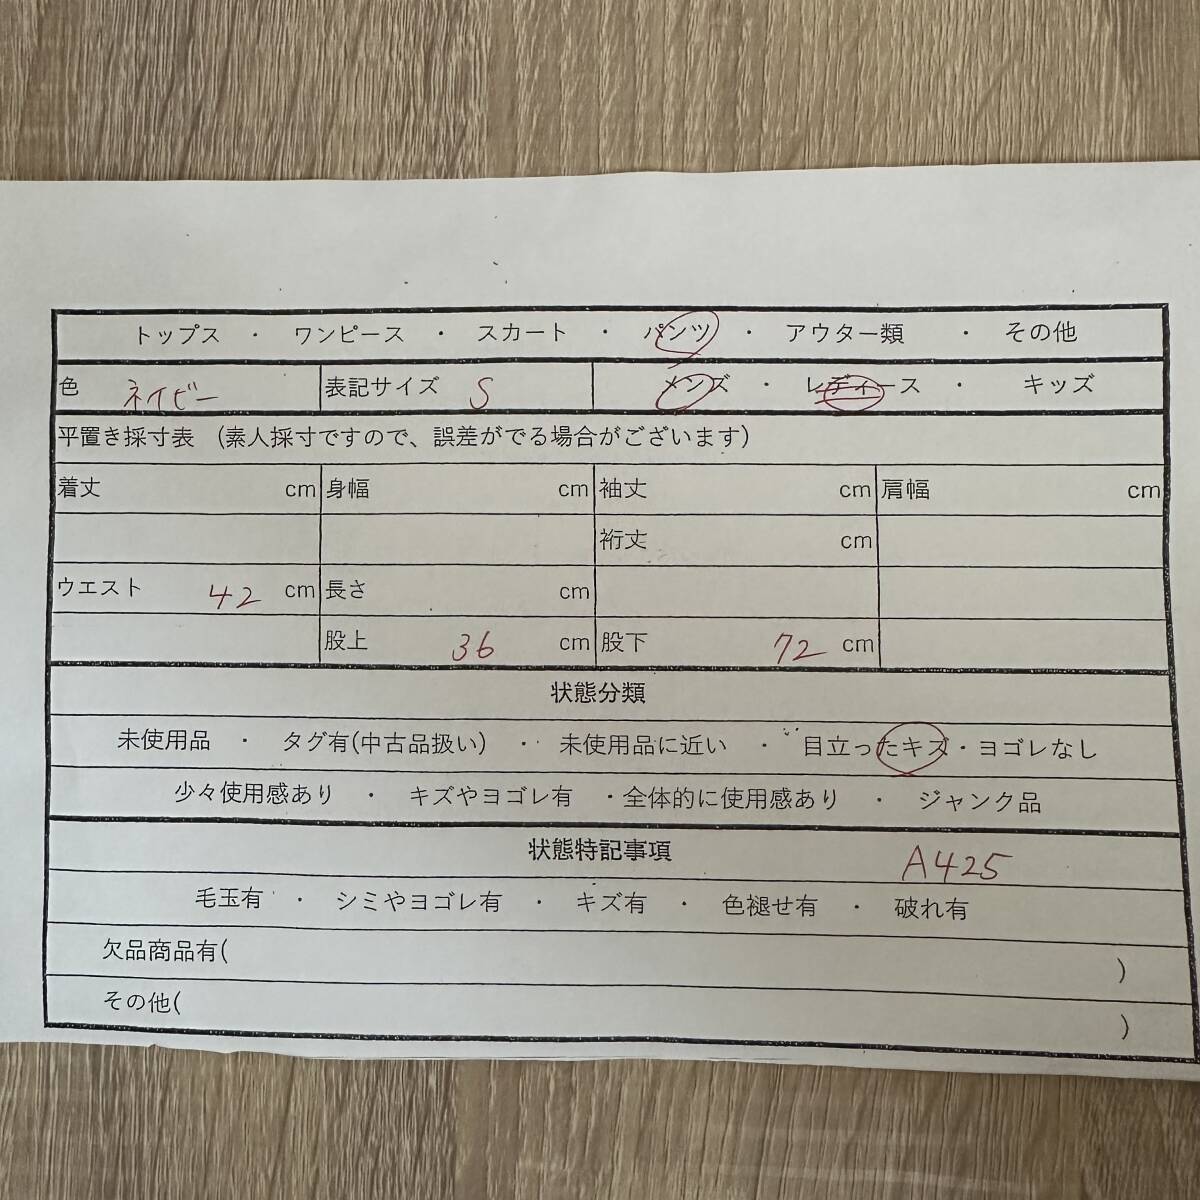 トップス ・ ワンピース ・ スカート ・ パンツ ・ アウター類 ・ その他
色 ネイビー 表記サイズ S メンズ ・ レディース ・ キッズ
平置き採寸表 (素人採寸ですので、誤差がでる場合がございます)
着丈 cm 身幅 cm 袖丈 cm 肩幅 cm
裄丈 cm
ウエスト 42 cm 長さ cm
股上 36 cm 股下 72 cm
状態分類
未使用品 ・ タグ有(中古品扱い) ・ 未使用品に近い ・ 目立ったキズ・ヨゴレなし
少々使用感あり ・ キズやヨゴレ有 ・全体的に使用感あり ・ ジャンク品
状態特記事項 A425
毛玉有 ・ シミやヨゴレ有 ・ キズ有 ・ 色褪せ有 ・ 破れ有
欠品商品有( )
その他( )